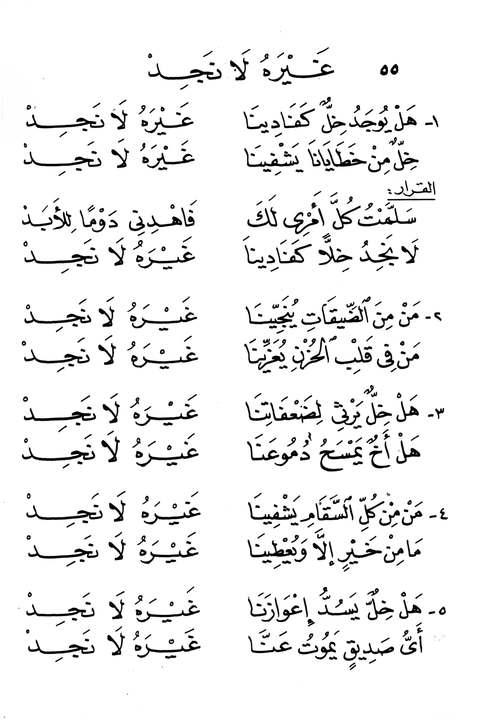 ٥٥ غَيْرَهُ لَا نَجِدْ
١- هَلْ يُوجَدُ خِلٌّ كَفَادِينَا غَيْرَهُ لَا نَجِدْ
خِلٌّ مِنْ خَطَايَانَا يَشْفِينَا غَيْرَهُ لَا نَجِدْ
القرار:
سَلَّمْتُ كُلَّ أَمْرِى لَكَ فَاهْدِنِى دَوْمًا لِلْأَبَدْ
لَا نَجِدُ خِلًّا كَفَادِينَا غَيْرَهُ لَا نَجِدْ
٢- مَنْ مِنَ الضِّيقَاتِ يُنَجِّينَا غَيْرَهُ لَا نَجِدْ
مَنْ فِى قَلْبِ الْحُزْنِ يُعَزِّينَا غَيْرَهُ لَا نَجِدْ
٣- هَلْ خِلٌّ يَرْثِى لِضَعَفَاتِنَا غَيْرَهُ لَا نَجِدْ
هَلْ أَخٌ يَمْسَحُ دُمُوعَنَا غَيْرَهُ لَا نَجِدْ
٤- مَنْ مِنْ كُلِّ السَّقَامِ يَشْفِينَا غَيْرَهُ لَا نَجِدْ
مَا مِنْ خَيْرٍ إِلَّا وَيُعْطِينَا غَيْرَهُ لَا نَجِدْ
٥- هَلْ خِلٌّ يَسُدُّ إِعْوَازَنَا غَيْرَهُ لَا نَجِدْ
أَىُّ صَدِيقٍ يَمُوتُ عَنَّا غَيْرَهُ لَا نَجِدْ